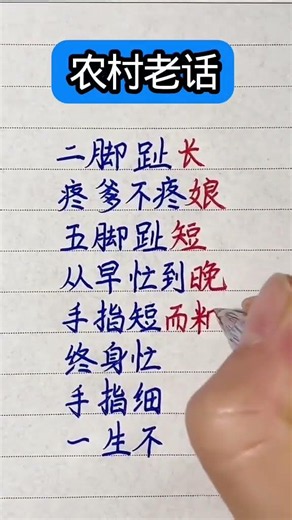 农村老话
二脚趾长
疼爹不疼娘
五脚趾短
从早忙到晚
手指短而
终身忙
手指细
一生不